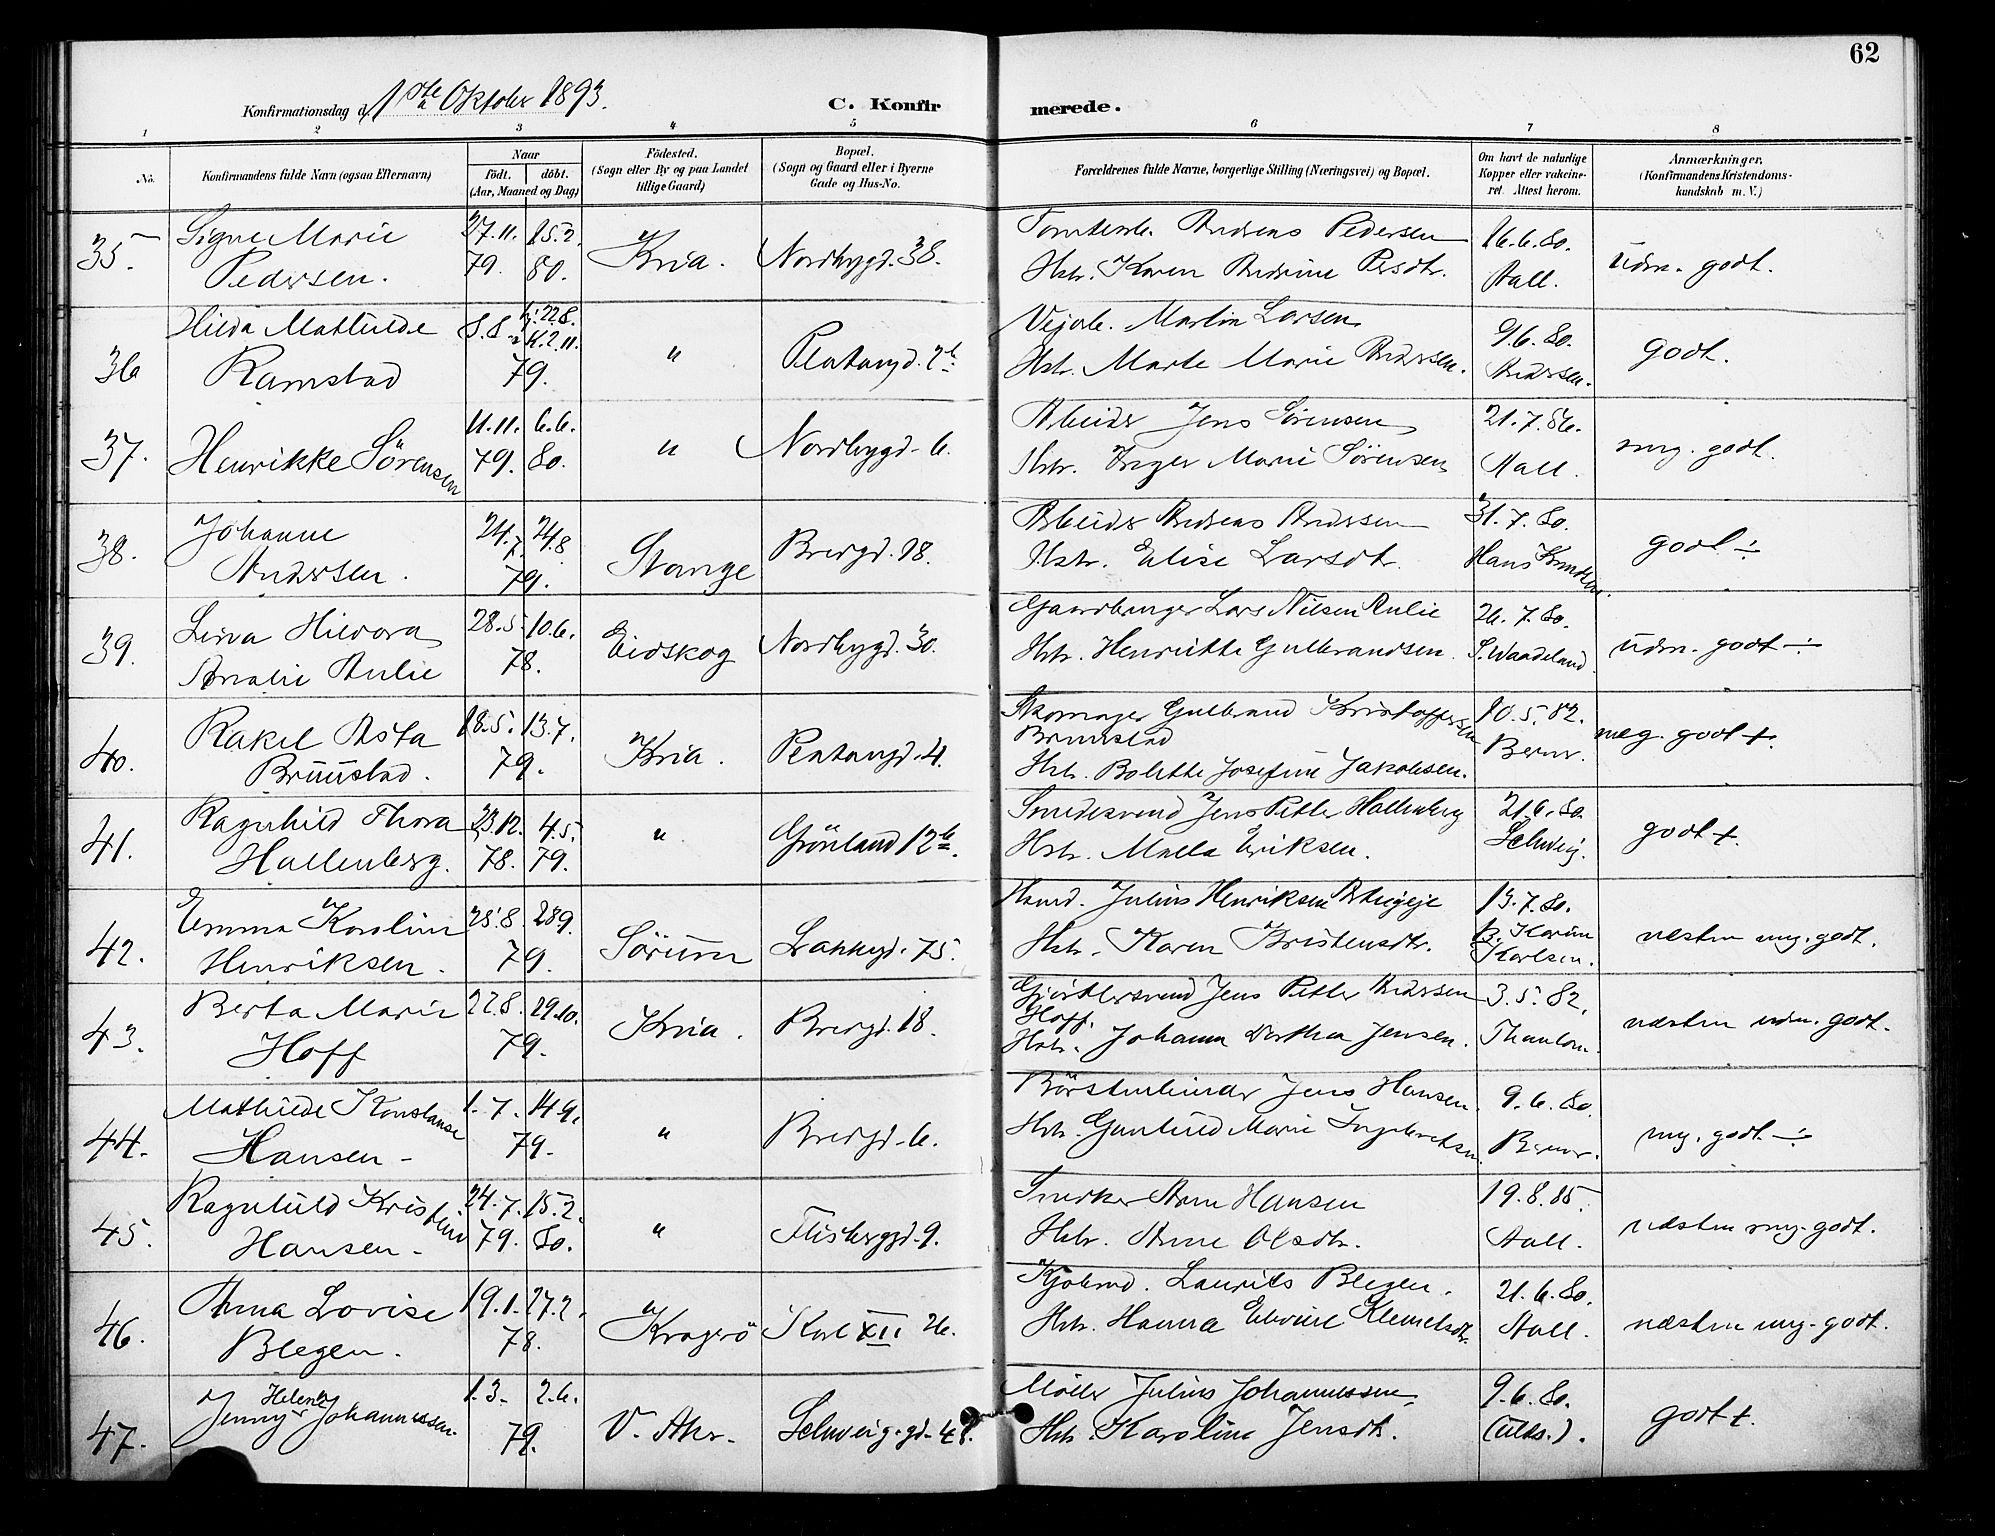 62
Konfirmationsdag d. 1ste Oktober 1893.
C. Konfirmerede.
1 2 3 4 5 6 7 8
No.
Konfirmandens fulde Navn (ogsaa Efternavn)
Naar
født. døbt.
(Aar, Maaned og Dag)
Födested.
(Sogn eller By og paa Landet
tillige Gaard)
Bopæl.
(Sogn og Gaard eller i Byerne
Gade og Hus-No.
Forældrenes fulde Navne, borgerlige Stilling (Næringsvei) og Bopæl.
Om havt de naturlige
Kopper eller vakcine-
ret. Attest herom.
Anmærkninger,
(Konfirmandens Kristendoms-
kundskab m. V.)
35. Signe Marie Pedersen. 27.11. 79. 15.2. 80. Kria. Nordbygd. 38.
Tomtearb. Andreas Pedersen
Hstr. Karen Andrine Persdtr.
16.6.80. Aall. udm. godt.
36 Hilda Mathilde Ramstad 8.8. 22.8. K. 2.11. 79. " Platousgd. 2b
Vejarb. Martin Larsen
Hstr. Marte Marie Andersen.
9.6.80. Andersen. godt.
37. Henrikke Sörensen 11.11. 79. 6.6. 80. " Nordbygd. 6.
Arbeider Jens Sørensen
Hstr. Inger Marie Sørensen
21.7.86. Aall. mg. godt.
38. Johanne Andersen. 24.7. 24.8 79. Stange Bredgd. 18.
Arbeider Andreas Andersen
Hstr. Elise Larsdtr.
31.7.80. Hans godt ÷
39. Lina Hildora Amalie Aulie 28.5. 10.6. 78. Eidskog Nordbygd. 30.
Gaardbruger Lars Nilsen Aulie
Hstr. Henriette Gulbrandsen.
26.7.80. S. Waadeland udm. godt ÷
40. Rakel Asta Bruustad. 18.5. 13.7. 79. Kria. Platousgd. 4.
Skomager Gulbrand Kristoffersen
Bruustad
Hstr. Bolette Josefine Jakobsen.
10.5.82. Berner. meg. godt +.
41. Ragnhild Thora Hallenberg. 23.12. 78. 4.5. 79. " Grönland 12b.
Smedesvend Jens Petter Hallenberg
Hstr. Malla Eriksen.
21.6.80. Schweig. godt +.
42. Emma Karoline Henriksen. 25.8. 28.9. 79. Sörum Lakkegd. 75.
Hand. Julius Henriksen
Hstr. Karen Kristensdtr.
13.7.80. B. Karine Karlsen. næsten mg. godt.
43. Berta Marie Hoff 22.8. 29.10. 79. Kria. Bredgd. 18.
Gjørtlersvend Jens Petter Andersen
Hoff.
Hstr. Johanna Dorthea Jensen.
3.5.82. Thaulow. næsten udm. godt.
44. Mathilde Konstanse Hansen 1.7. 14.9. 79. " Bredgd. 6.
Börstenbinder Jens Hansen.
Hstr. Gunhild Marie Ingebretsen.
9.6.80. Berner. mg. godt ÷
45. Ragnhild Kristine Hansen 24.7. 79. 15.2. 80. " Flisbergd. 9.
Snedker Arne Hansen
Hstr. Anne Olsdtr.
19.8.85. Aall. næsten mg. godt.
46. Anna Lovise Blegen. 19.1. 27.2. 78. Kragerö Karl XII 26.
Kjøbmd. Laurits Blegen.
Hstr. Hanna Elevine Klemetsdtr.
21.6.80. Aall. næsten mg. godt.
47. Jenny Helene Johannessen. 1.3. 2.6. 79. V. Aker. Schweig.gd. 48.
Möller Julius Johannessen,
Hstr. Karoline Jensdtr.
9.6.80. godt +.